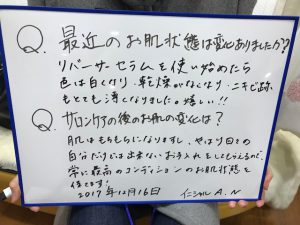 Q. 最近のお肌状態は変化ありましたか??
リバーサーセラムを使い始めたら
色は白くなり、乾燥がなくなり、ニキビ跡
もとても薄くなりました。嬉しい!!
Q. サロンケアの後のお肌の変化は?
肌はもちもちになりますし、やはり日々の
自分だけでは出来ないお手入れをしてもらえるので、
常に最高のコンディションのお肌状態を
保てます!
2017年12月16日 イニシャル A.N